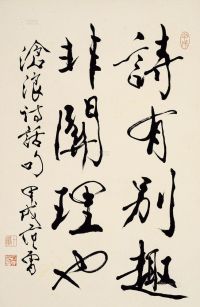 詩有别趣
非關理也
滄浪诗話句
甲戌